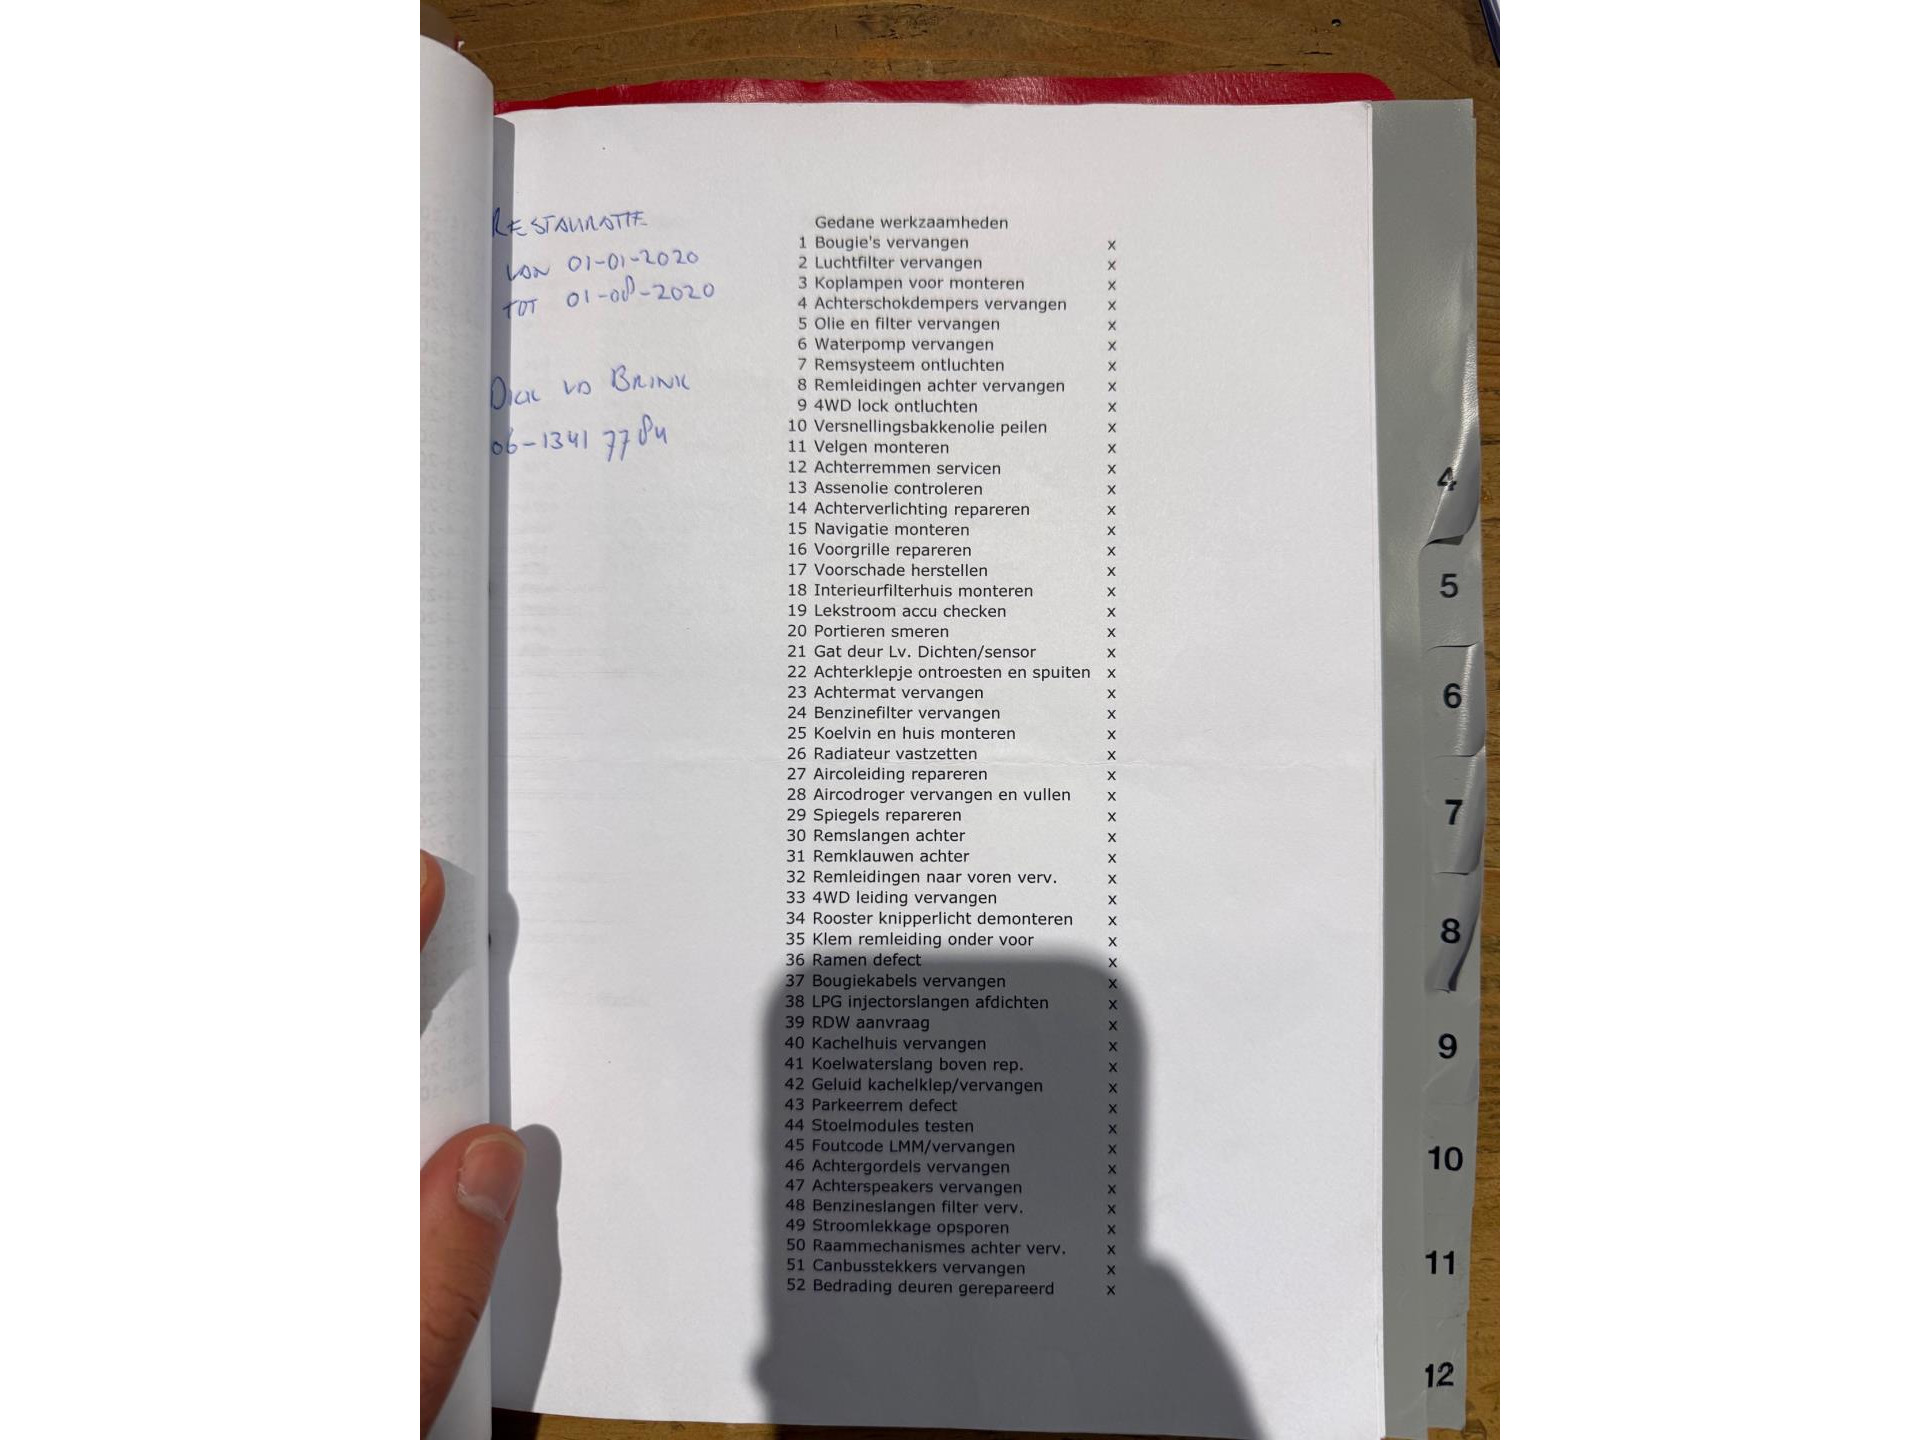 RESTAURATIE
VAN 01-01-2020
TOT 01-08-2020
DICK VD BRINK
06-1341 7784
Gedane werkzaamheden
1 Bougie's vervangen x
2 Luchtfilter vervangen x
3 Koplampen voor monteren x
4 Achterschokdempers vervangen x
5 Olie en filter vervangen x
6 Waterpomp vervangen x
7 Remsysteem ontluchten x
8 Remleidingen achter vervangen x
9 4WD lock ontluchten x
10 Versnellingsbakkenolie peilen x
11 Velgen monteren x
12 Achterremmen servicen x
13 Assenolie controleren x
14 Achterverlichting repareren x
15 Navigatie monteren x
16 Voorgrille repareren x
17 Voorschade herstellen x
18 Interieurfilterhuis monteren x
19 Lekstroom accu checken x
20 Portieren smeren x
21 Gat deur Lv. Dichten/sensor x
22 Achterklepje ontroesten en spuiten x
23 Achtermat vervangen x
24 Benzinefilter vervangen x
25 Koelvin en huis monteren x
26 Radiateur vastzetten x
27 Aircoleiding repareren x
28 Aircodroger vervangen en vullen x
29 Spiegels repareren x
30 Remslangen achter x
31 Remklauwen achter x
32 Remleidingen naar voren verv. x
33 4WD leiding vervangen x
34 Rooster knipperlicht demonteren x
35 Klem remleiding onder voor x
36 Ramen defect x
37 Bougiekabels vervangen x
38 LPG injectorslangen afdichten x
39 RDW aanvraag x
40 Kachelhuis vervangen x
41 Koelwaterslang boven rep. x
42 Geluid kachelklep/vervangen x
43 Parkeerrem defect x
44 Stoelmodules testen x
45 Foutcode LMM/vervangen x
46 Achtergordels vervangen x
47 Achterspeakers vervangen x
48 Benzineslangen filter verv. x
49 Stroomlekkage opsporen x
50 Raammechanismes achter verv. x
51 Canbusstekkers vervangen x
52 Bedrading deuren gerepareerd x
4
5
6
7
8
9
10
11
12